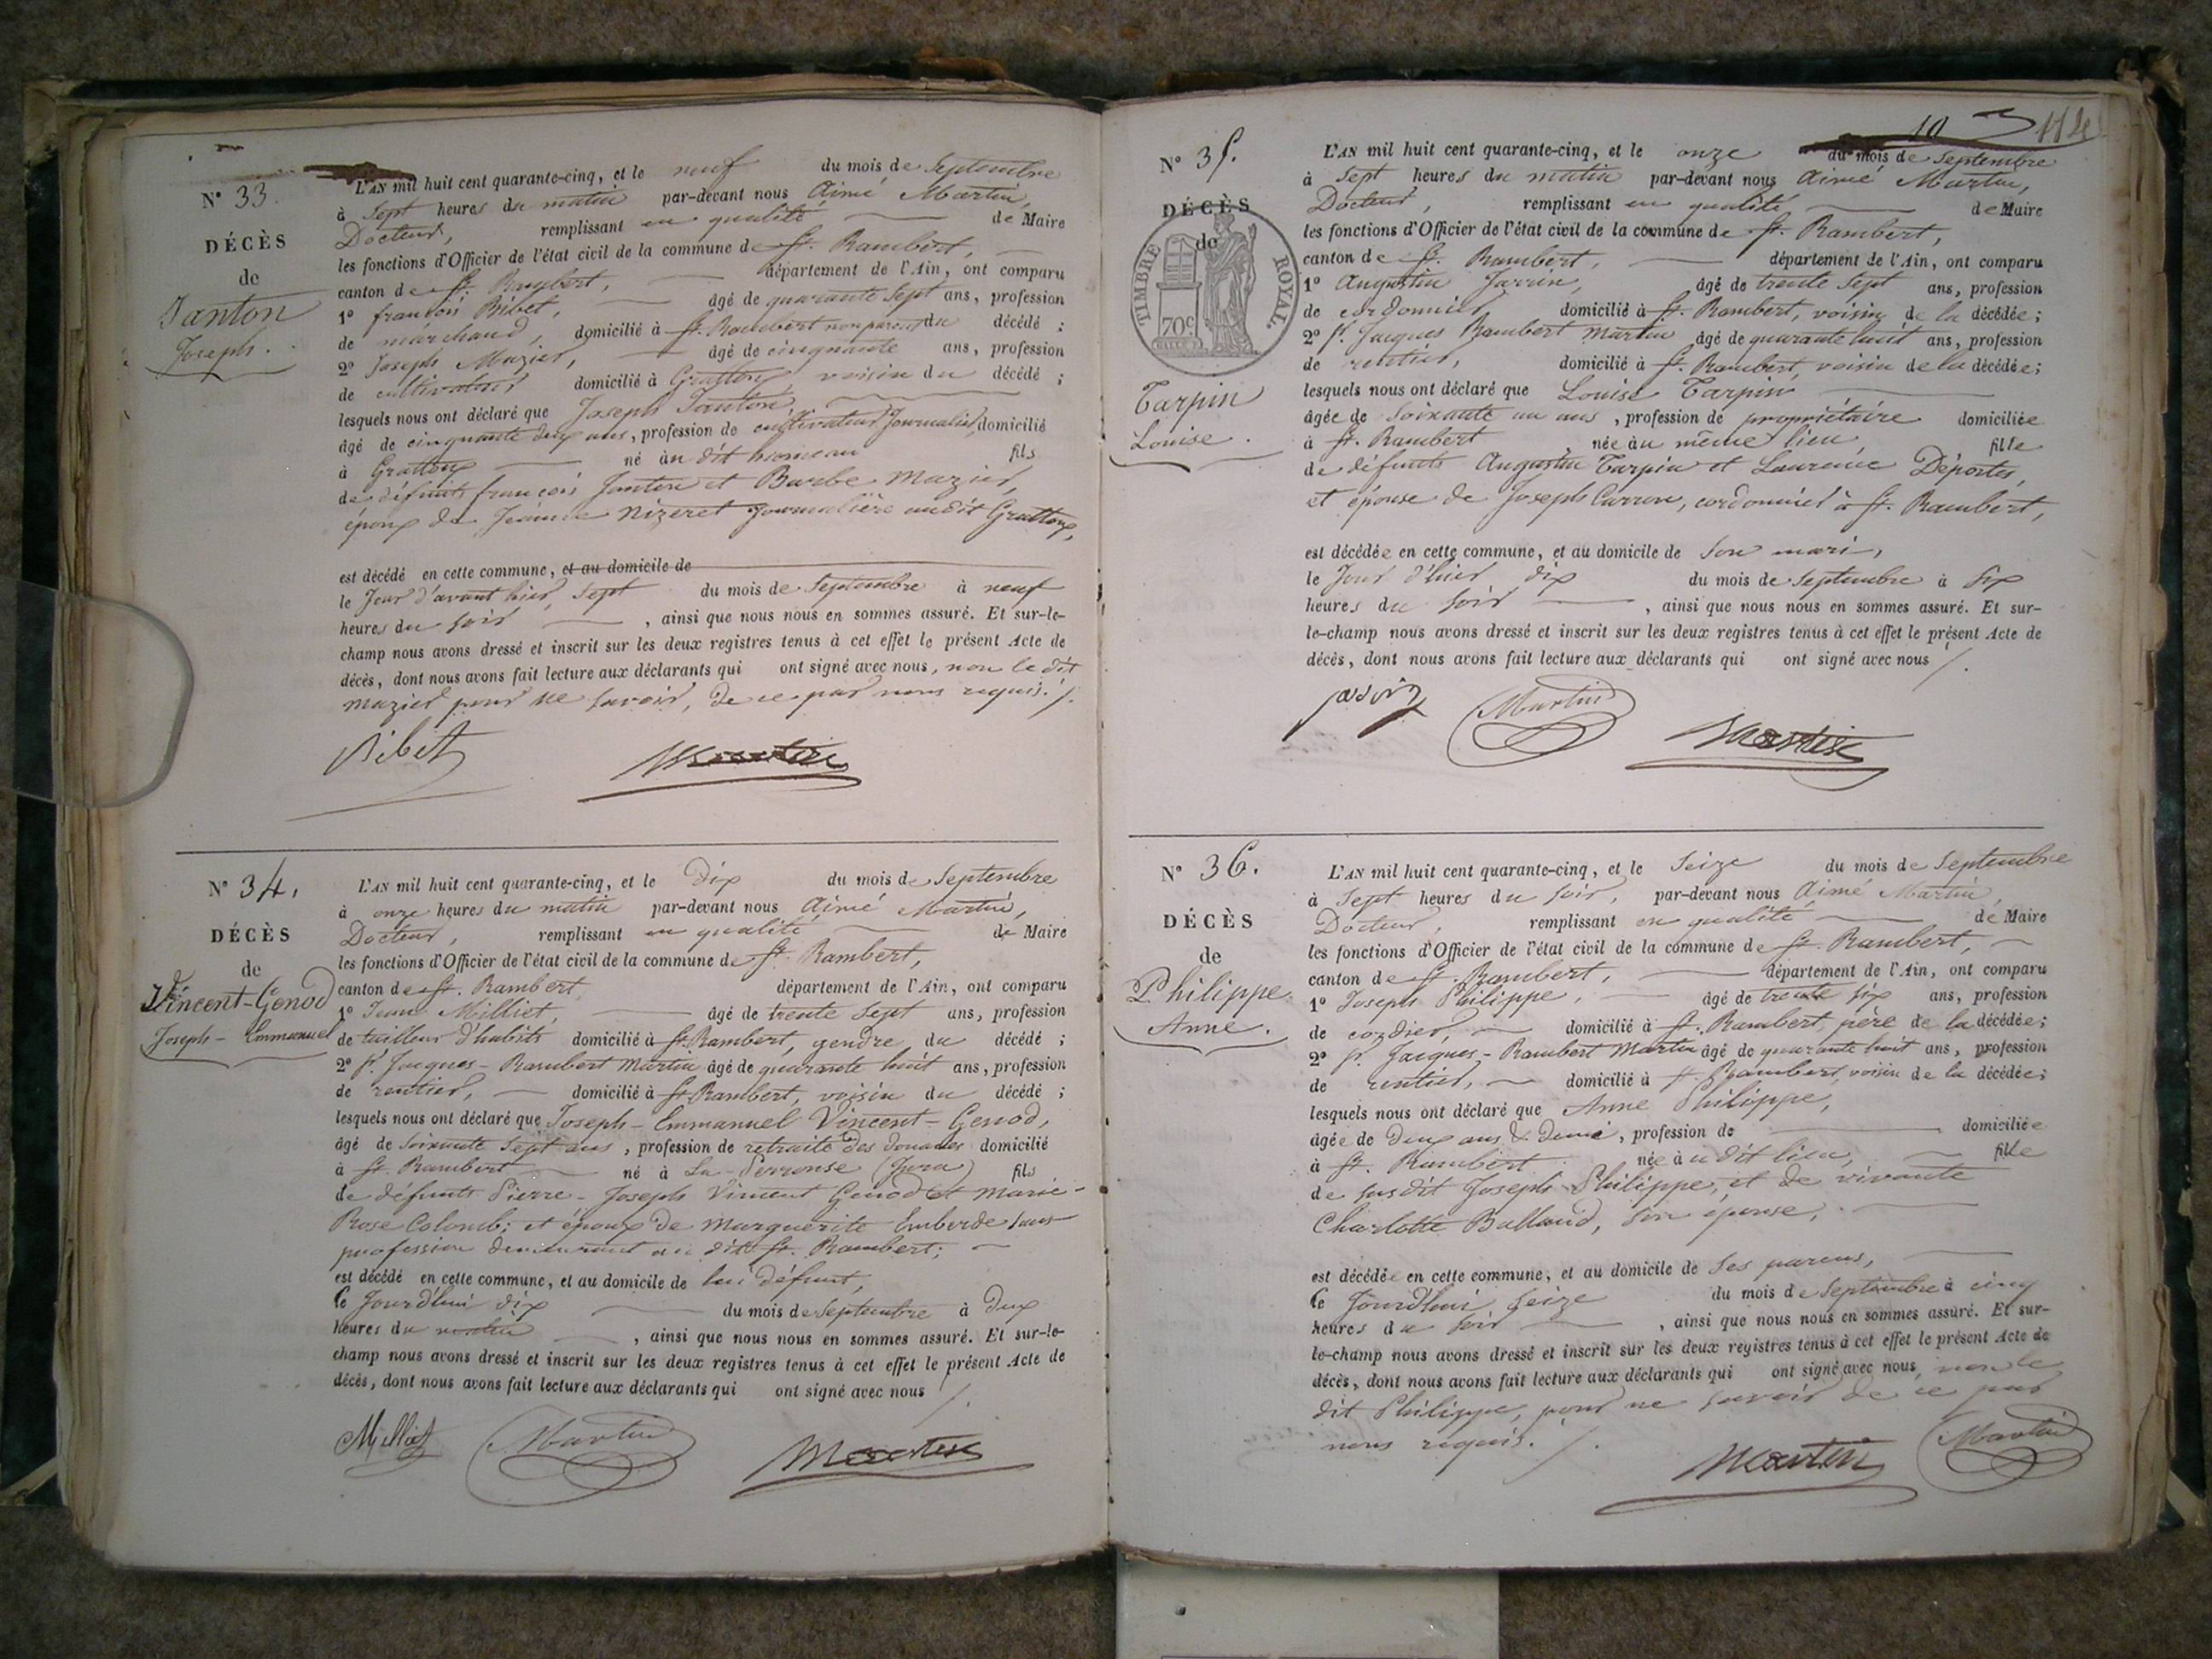 N° 33.
DÉCÈS
de
Janton
Joseph.
L'AN mil huit cent quarante-cinq, et le neuf du mois de Septembre
à Sept heures du matin par-devant nous Aimé Martin,
Docteur, remplissant en qualité de Maire
les fonctions d'Officier de l'état civil de la commune de St. Rambert,
canton de St. Rambert, département de l'Ain, ont comparu
1° françois Bibet, âgé de quarante Sept ans, profession
de marchand, domicilié à St. Rambert non parent du décédé ;
2° Joseph Mazier, âgé de cinquante ans, profession
de cultivateur domicilié à Grattoux, voisin du décédé ;
lesquels nous ont déclaré que Joseph Janton,
âgé de cinquante deux ans, profession de cultivateur Journalier, domicilié
à Grattoux né àu dit hameau fils
de défunts françois Janton et Barbe Mazier,
époux de Jeanne Nizeret Journalière audit Grattoux,
est décédé en cette commune, et au domicile de
le Jour d'avant hier, Sept du mois de Septembre à neuf
heures du soir , ainsi que nous nous en sommes assuré. Et sur-le-
champ nous avons dressé et inscrit sur les deux registres tenus à cet effet le présent Acte de
décès, dont nous avons fait lecture aux déclarants qui ont signé avec nous, non le dit
Mazier pour ne savoir, de ce par nous requis. /.
Bibet Martin
N° 34.
DÉCÈS
de
Vincent-Genod
Joseph-Emmanuel
L'AN mil huit cent quarante-cinq, et le Dix du mois de Septembre
à onze heures du matin par-devant nous Aimé Martin,
Docteur, remplissant en qualité de Maire
les fonctions d'Officier de l'état civil de la commune de St. Rambert,
canton de St. Rambert département de l'Ain, ont comparu
1° Jean Milliet, âgé de trente Sept ans, profession
de tailleur d'habits domicilié à St Rambert, gendre du décédé ;
2° pr. Jacques-Rambert Martin âgé de quarante huit ans, profession
de rentier, domicilié à St Rambert, voisin du décédé ;
lesquels nous ont déclaré que Joseph-Emmanuel Vincent-Genod,
âgé de Soixante Sept ans, profession de retraité des douanes domicilié
à St. Rambert né à La (Jura) fils
de défunts Pierre-Joseph Vincent Genod et Marie-
Rose Colomb; et époux de Marguerite Emberde sans
profession demeurant au dit St. Rambert;
est décédé en cette commune, et au domicile de lui défunt,
le Jourd'hui dix du mois de Septembre à Deux
heures du matin , ainsi que nous nous en sommes assuré. Et sur-le-
champ nous avons dressé et inscrit sur les deux registres tenus à cet effet le présent Acte de
décès, dont nous avons fait lecture aux déclarants qui ont signé avec nous /.
Milliet Martin Martin
10 114
N° 35.
DÉCÈS
de
TIMBRE ROYAL.
70c
Tarpin
Louise.
L'AN mil huit cent quarante-cinq, et le onze du mois de Septembre
à Sept heures du matin par-devant nous Aimé Martin,
Docteur, remplissant en qualité de Maire
les fonctions d'Officier de l'état civil de la commune de St. Rambert,
canton de St. Rambert, département de l'Ain, ont comparu
1° Augustin Jarrin, âgé de trente Sept ans, profession
de cordonnier, domicilié à St. Rambert, voisin de la décédée ;
2° pr. Jacques Rambert Martin âgé de quarante huit ans, profession
de rentier, domicilié à St. Rambert, voisin de la décédée ;
lesquels nous ont déclaré que Louise Tarpin
âgée de Soixante un ans, profession de propriétaire domiciliée
à St. Rambert , née àu même lieu fille
de défunts Augustin Tarpin et Laurence Déportes,
et épouse de Joseph Carron, cordonnier à St. Rambert,
est décédée en cette commune, et au domicile de Son mari,
le Jour d'hier dix du mois de Septembre à Six
heures du Soir , ainsi que nous nous en sommes assuré. Et sur-
le-champ nous avons dressé et inscrit sur les deux registres tenus à cet effet le présent Acte de
décès, dont nous avons fait lecture aux déclarants qui ont signé avec nous /.
Martin Martin
N° 36.
DÉCÈS
de
Philippe
Anne.
L'AN mil huit cent quarante-cinq, et le Seize du mois de Septembre
à Sept heures du Soir, par-devant nous Aimé Martin,
Docteur, remplissant en qualité de Maire
les fonctions d'Officier de l'état civil de la commune de St. Rambert,
canton de St. Rambert, département de l'Ain, ont comparu
1° Joseph Philippe, âgé de trente six ans, profession
de cordier, domicilié à St. Rambert, père de la décédée ;
2° pr. Jacques-Rambert Martin âgé de quarante huit ans, profession
de rentier, domicilié à St. Rambert, voisin de la décédée ;
lesquels nous ont déclaré que Anne Philippe,
âgée de Deux ans & demi, profession de domiciliée
à St. Rambert née àu dit lieu, fille
de susdit Joseph Philippe, et de vivante
Charlotte Balland, son épouse,
est décédée en cette commune, et au domicile de Ses parens,
le Jourd'hui Seize du mois de Septembre à cinq
heures du soir , ainsi que nous nous en sommes assuré. Et sur-
le-champ nous avons dressé et inscrit sur les deux registres tenus à cet effet le présent Acte de
décès, dont nous avons fait lecture aux déclarants qui ont signé avec nous, non le
dit Philippe, pour ne savoir de ce par
nous requis. /.
Martin Martin